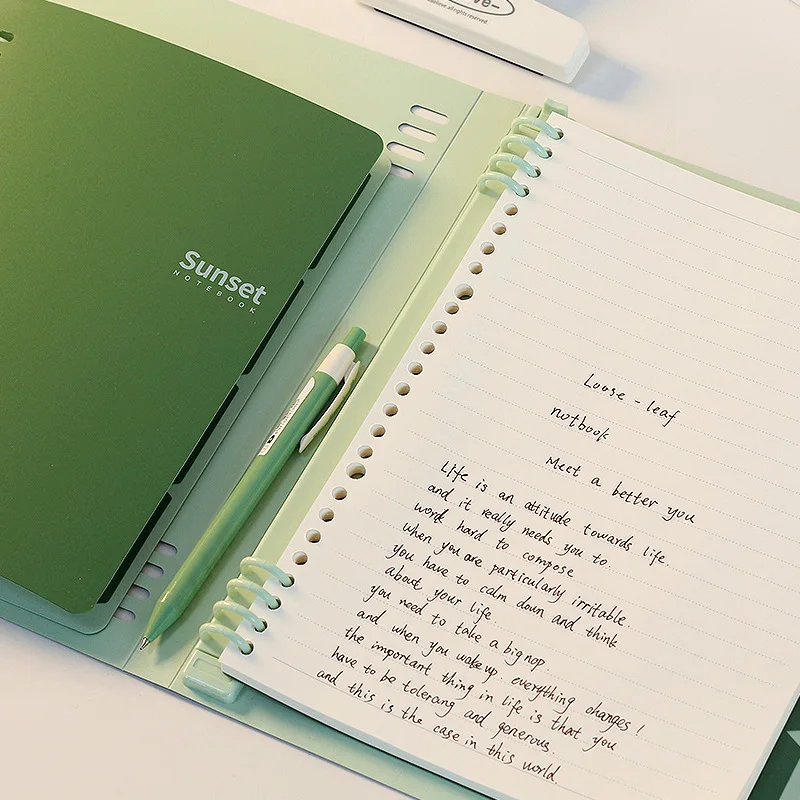 ve-
believe.all rights reserved
Sunset
NOTEBOOK
Loose - leaf
notbook
Meet a better you
Life is an attitude towards life.
and it really needs you to.
work hard to compose
when you are particularly irritable.
you have to calm down and think
about your life
you need to take a big nop.
and when you wake up. everything changes!
the important thing in life is that you
have to be tolerang and generous.
and this is the case in this world.